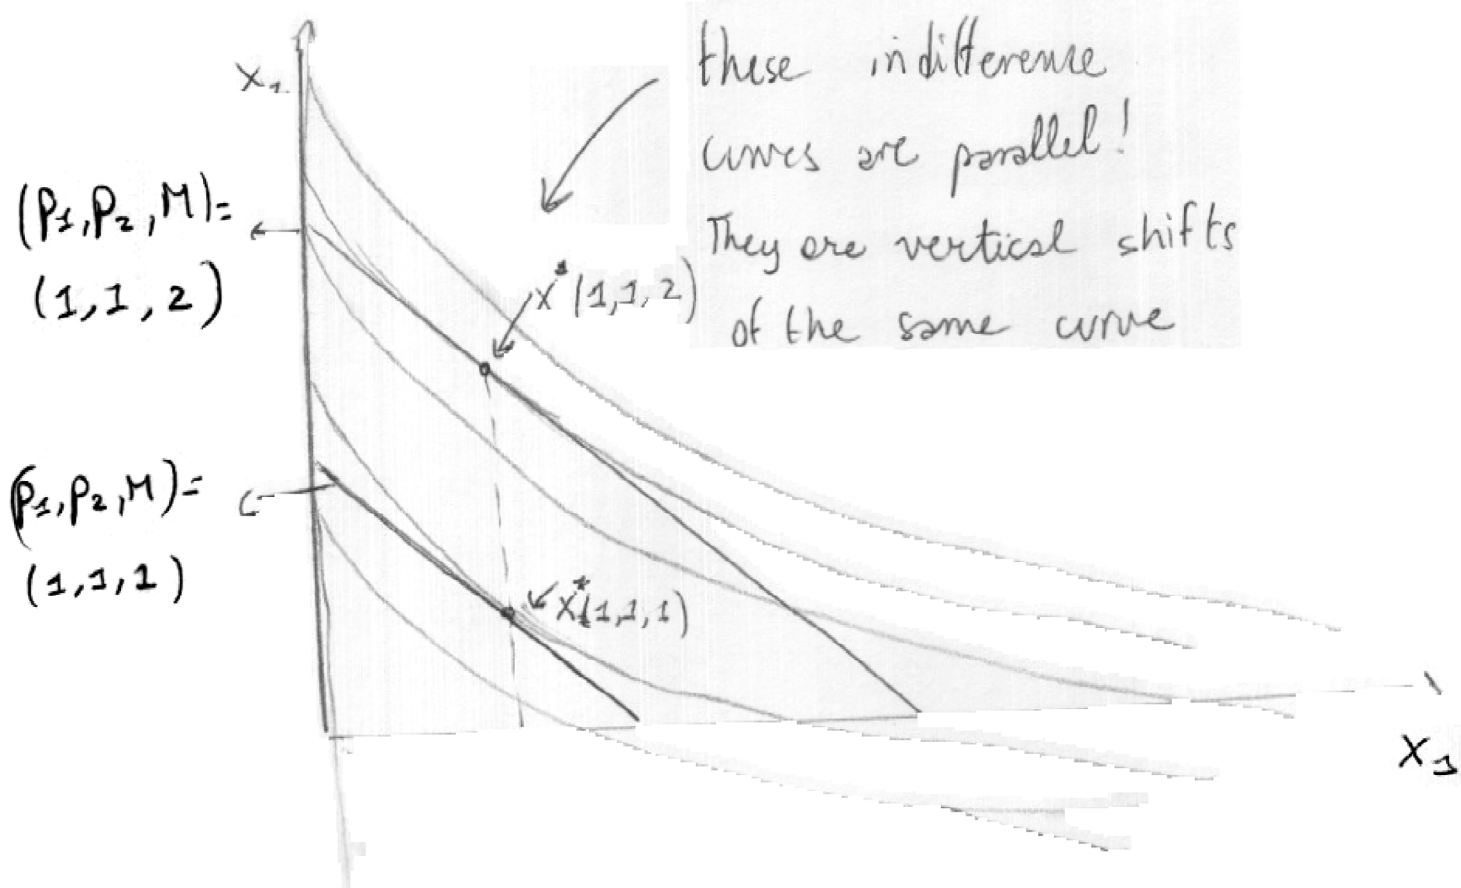 these indifference
curves are parallel!
They are vertical shifts
of the same curve
x1
(P1, P2, M) =
(1, 1, 2)
x*(1, 1, 2)
(P1, P2, M) =
(1, 1, 1)
x*(1, 1, 1)
x1